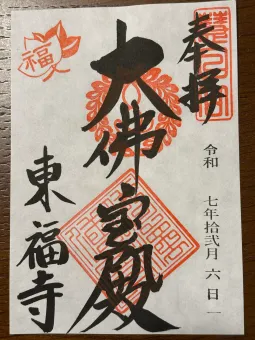 奉拝
令和 七年拾弐月 六日
大佛宝殿
東福寺
福